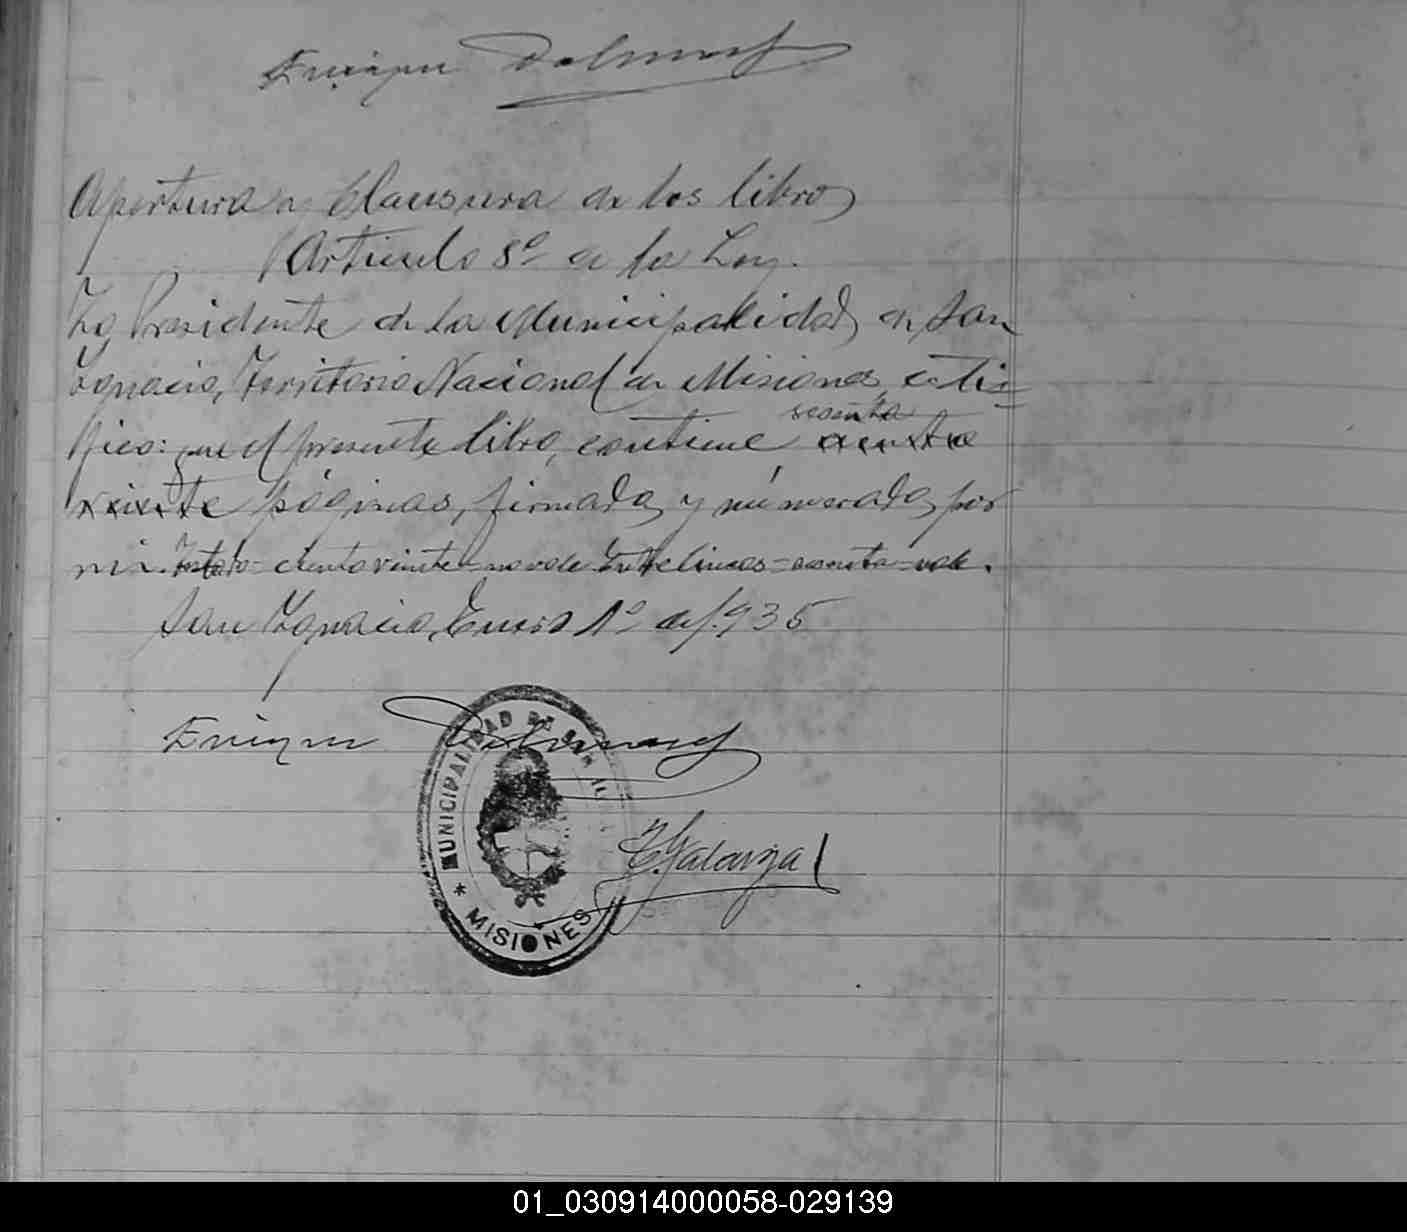 Enrique
Apertura y Clausura de los libros
Articulo 8º de la Ley.
Yo, Presidente de la Municipalidad de San
Ignacio, Territorio Nacional de Misiones, certi=
fico: que el presente libro, contiene sesenta ciento
veinte páginas, firmadas y númeradas por
mi. Testado = ciento veinte = no vale. Entrelineas = sesenta = vale.
San Ignacio, Enero 1º de 1.935
Enrique
MUNICIPALIDAD DE SAN
MISIONES
Galarza
01_030914000058-029139